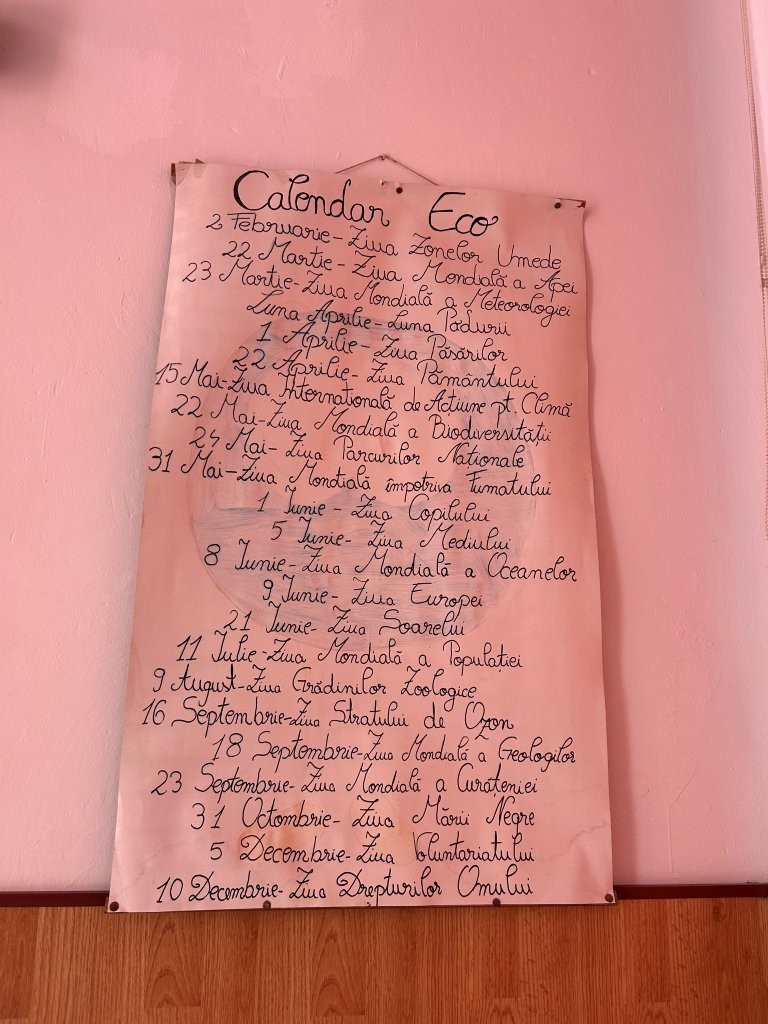 Calendar Eco
2 Februarie - Ziua Zonelor Umede
22 Martie - Ziua Mondială a Apei
23 Martie - Ziua Mondială a Meteorologiei
Luna Aprilie - Luna Pădurii
1 Aprilie - Ziua Păsărilor
22 Aprilie - Ziua Pământului
15 Mai - Ziua Internațională de Acțiune pt. Climă
22 Mai - Ziua Mondială a Biodiversității
24 Mai - Ziua Parcurilor Naționale
31 Mai - Ziua Mondială împotriva Fumatului
1 Iunie - Ziua Copilului
5 Iunie - Ziua Mediului
8 Iunie - Ziua Mondială a Oceanelor
9 Iunie - Ziua Europei
21 Iunie - Ziua Soarelui
11 Iulie - Ziua Mondială a Populației
9 August - Ziua Grădinilor Zoologice
16 Septembrie - Ziua Stratului de Ozon
18 Septembrie - Ziua Mondială a Geologilor
23 Septembrie - Ziua Mondială a Curățeniei
31 Octombrie - Ziua Mării Negre
5 Decembrie - Ziua Voluntariatului
10 Decembrie - Ziua Drepturilor Omului